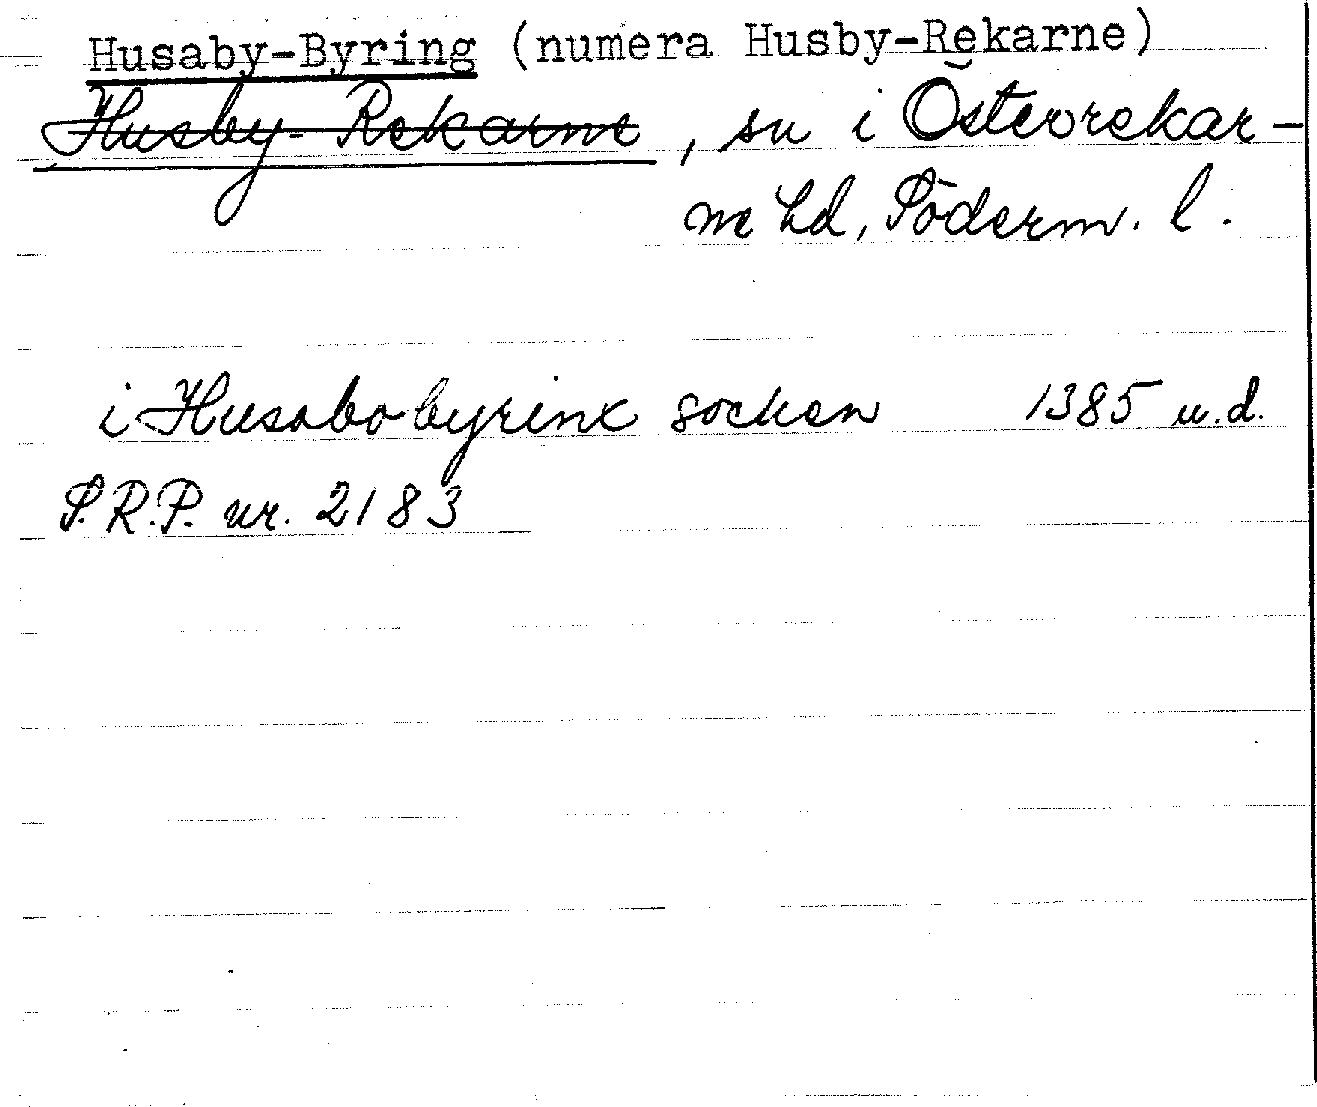 Husaby-Byring (numera Husby-Rekarne)
Husby-Rekarne, sn i Österrekar-
ne hd, Söderm. l.
i Husabobyrinx socken 1385 u.d.
S.R.P. nr. 2183